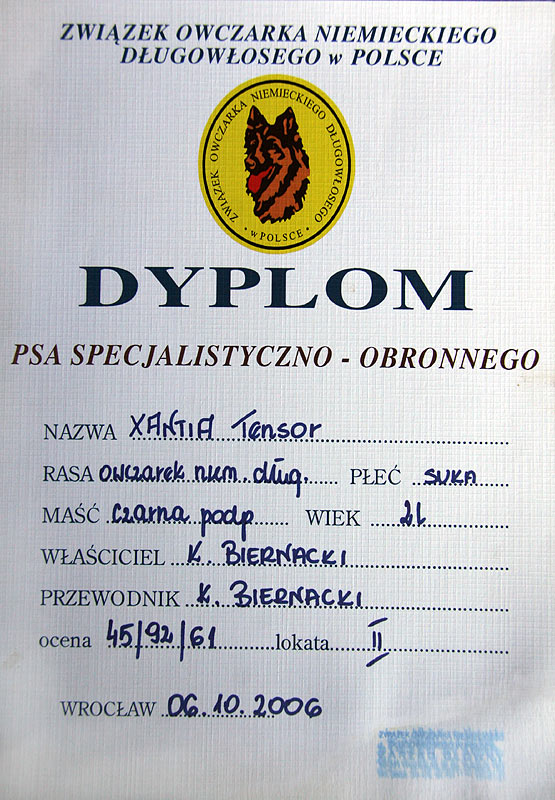 ZWIĄZEK OWCZARKA NIEMIECKIEGO
DŁUGOWŁOSEGO w POLSCE
ZWIĄZEK OWCZARKA NIEMIECKIEGO DŁUGOWŁOSEGO
• w POLSCE •
DYPLOM
PSA SPECJALISTYCZNO - OBRONNEGO
NAZWA XANTIA Tensor
RASA owczarek niem. dług. PŁEĆ SUKA
MAŚĆ czarna podp WIEK 2l
WŁAŚCICIEL K. BIERNACKI
PRZEWODNIK K. BIERNACKI
ocena 45/92/61 lokata II
WROCŁAW 06.10.2006